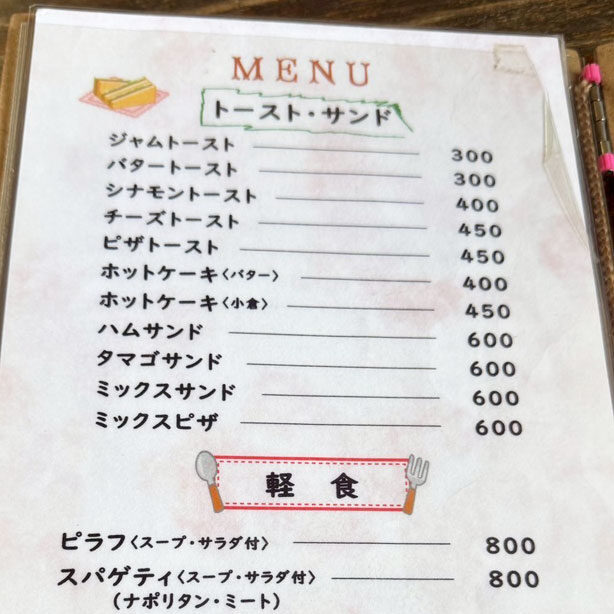 MENU
トースト・サンド
ジャムトースト 300
バタートースト 300
シナモントースト 400
チーズトースト 450
ピザトースト 450
ホットケーキ〈バター〉 400
ホットケーキ〈小倉〉 450
ハムサンド 600
タマゴサンド 600
ミックスサンド 600
ミックスピザ 600
軽食
ピラフ〈スープ・サラダ付〉 800
スパゲティ〈スープ・サラダ付〉 800
(ナポリタン・ミート)